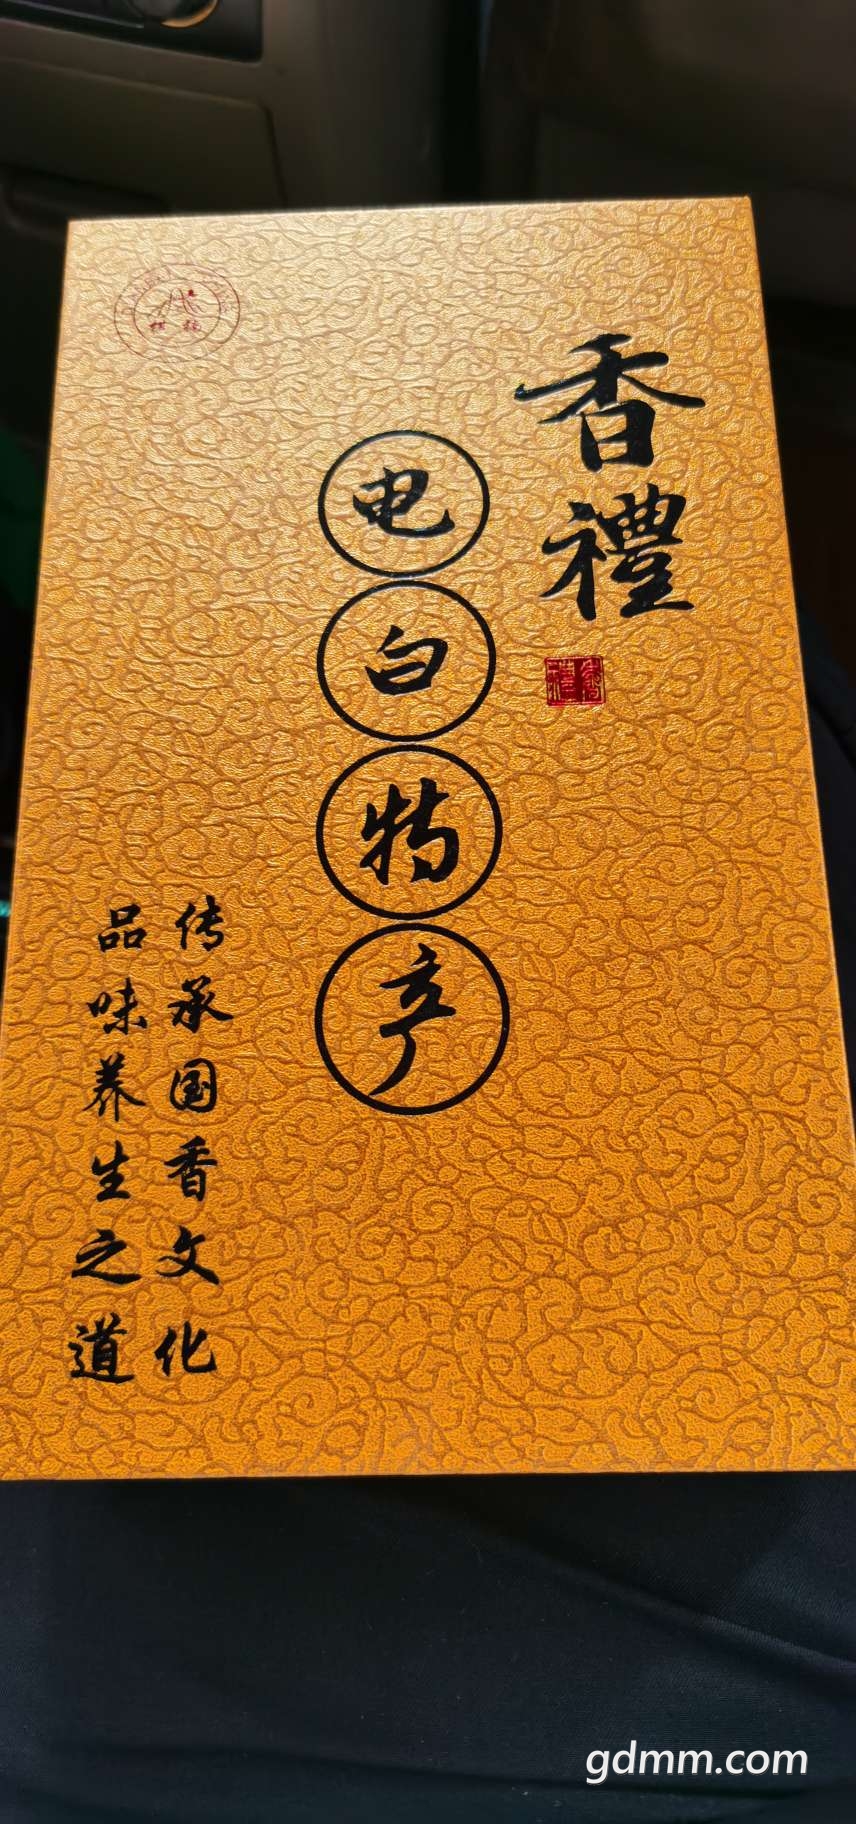 香禮
电白特产
传承国香文化
品味养生之道
gdmm.com